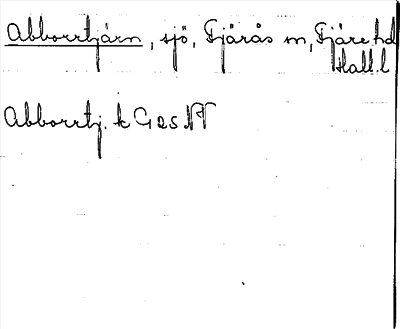 Abborrtjärn, sjö, Fjärås sn, Fjäre hd
Hall.l
Abborrtj. k G2s NV